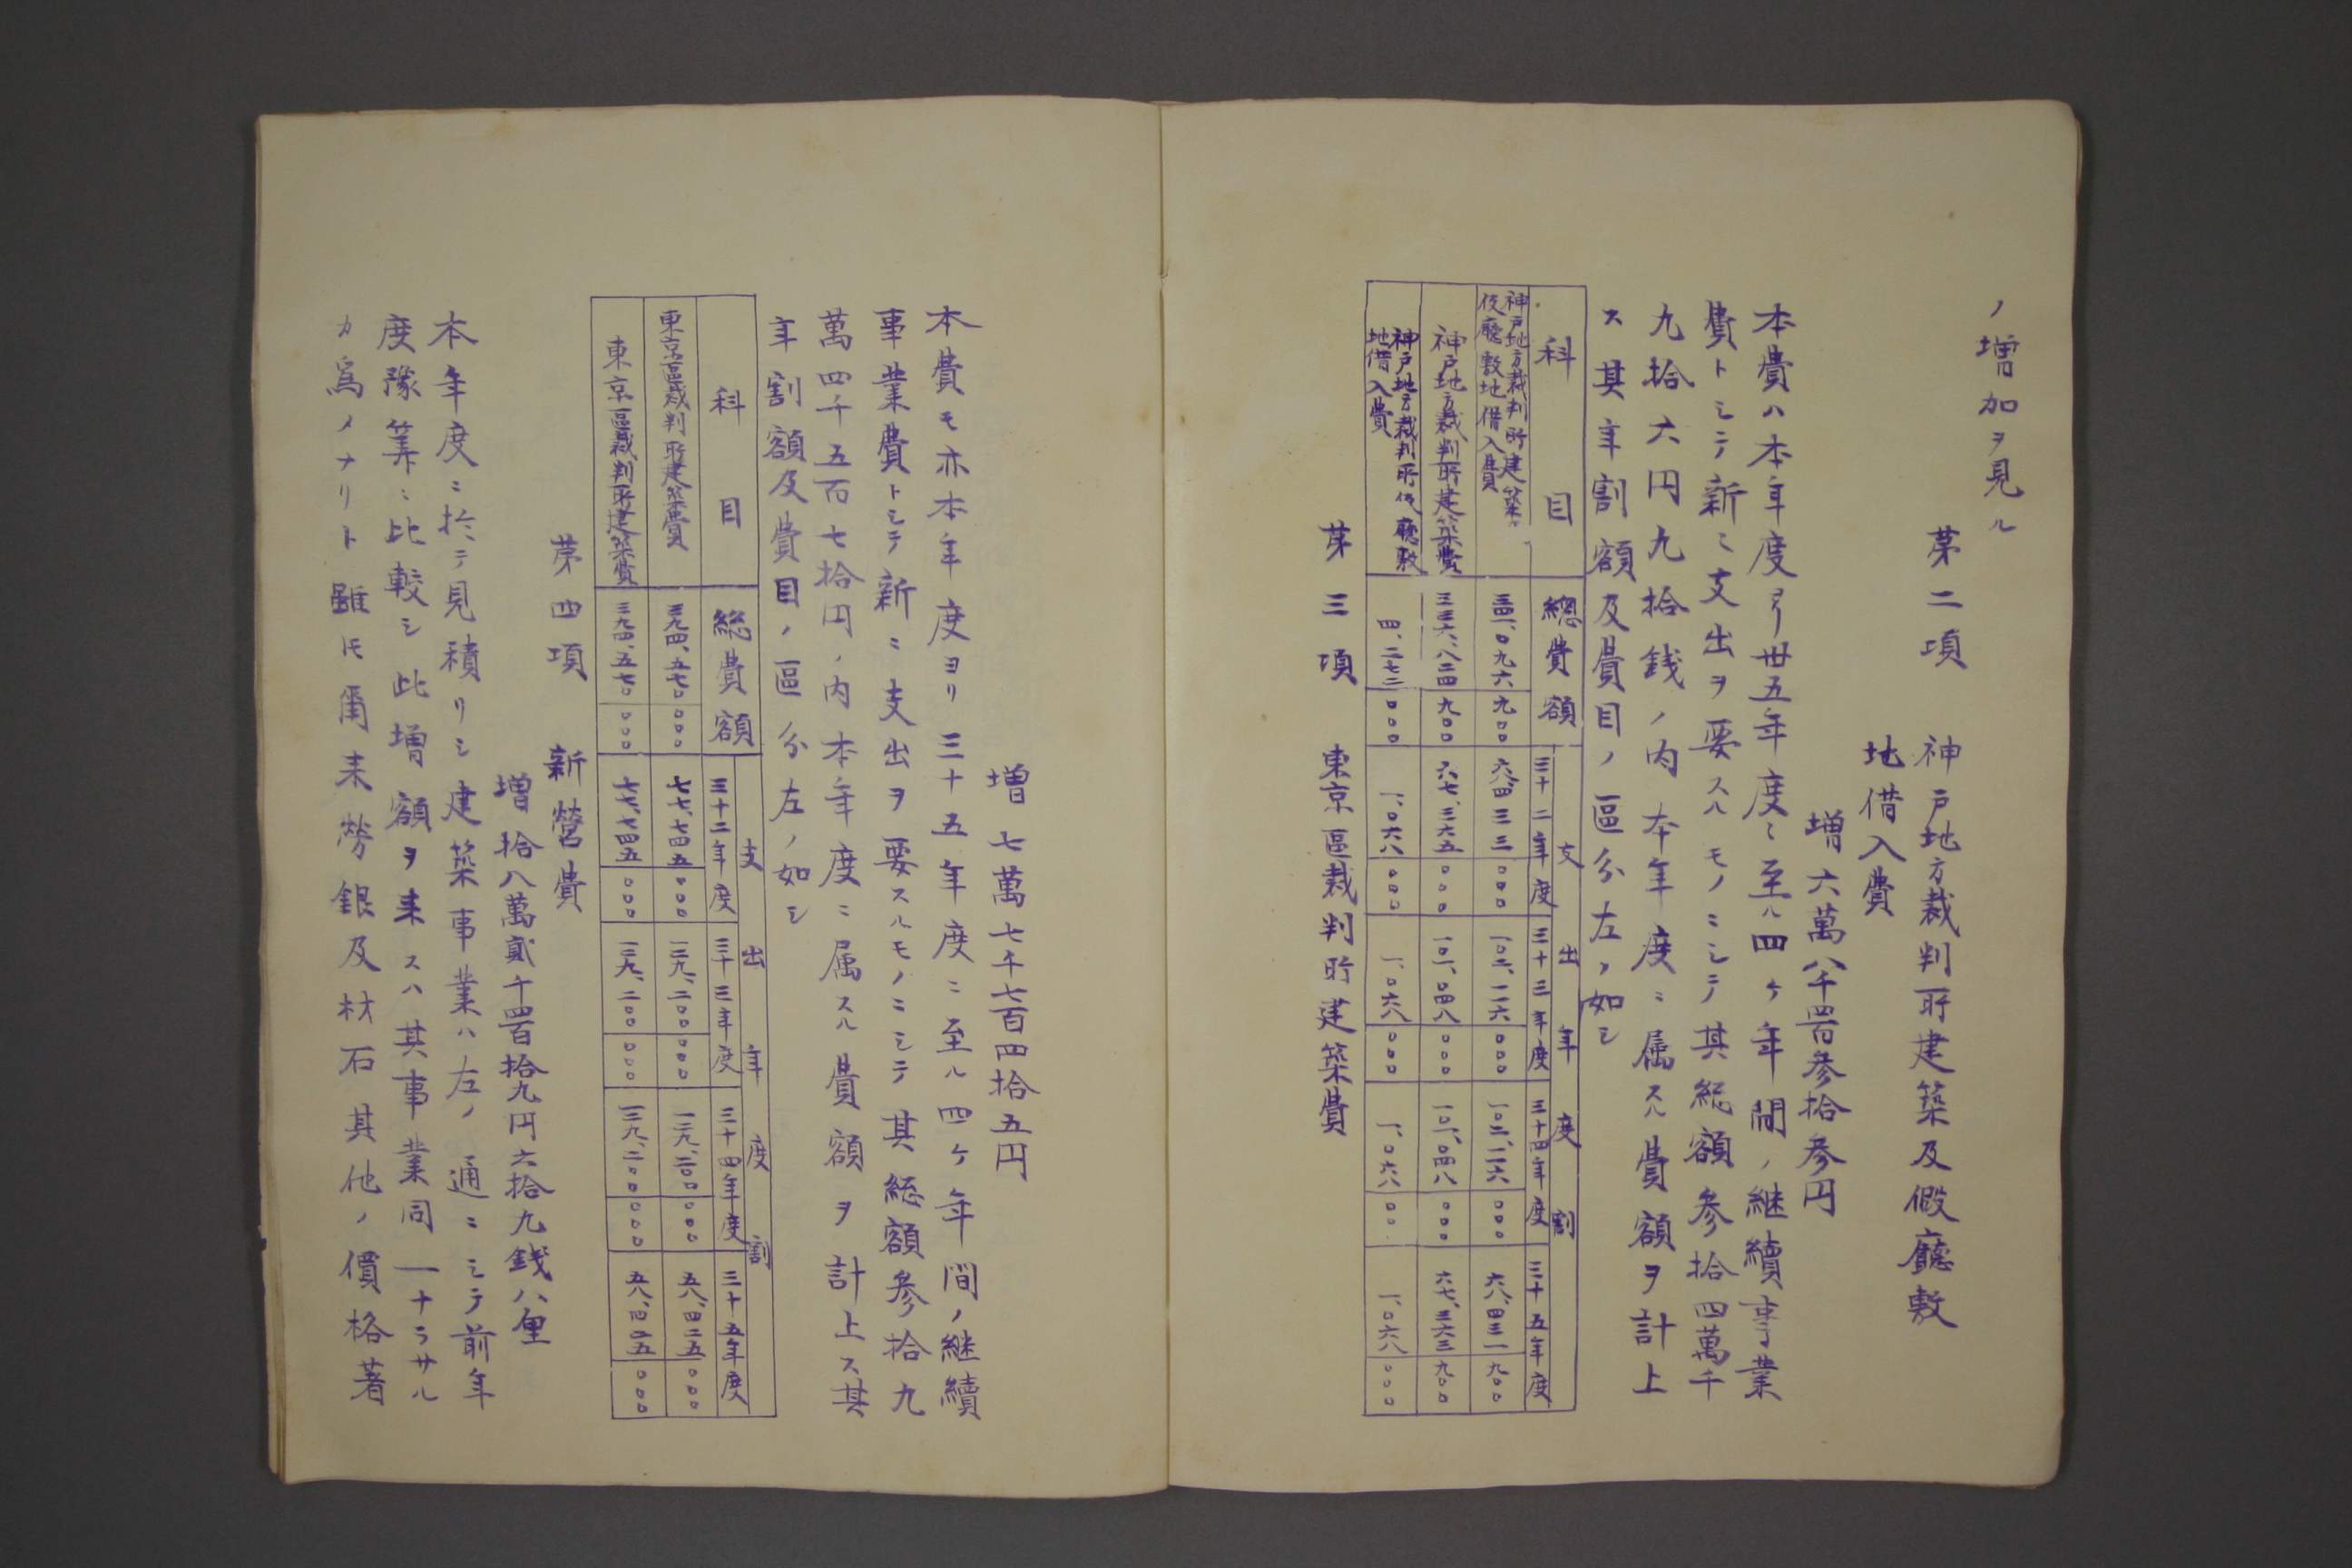 ノ増加ヲ見ル
第二項　神戸地方裁判所建築及假廳敷
地借入費
増六萬八千四百参拾参円
本費ハ本年度ヨリ卅五年度ニ至ル四ケ年間ノ継續事業
費トシテ新ニ支出ヲ要スルモノニシテ其総額参拾四萬千
九拾六円九拾銭ノ内本年度ニ属スル費額ヲ計上
ス其年割額及費目ノ區分左ノ如シ
科目　總費額　支出年度割
三十二年度　三十三年度　三十四年度　三十五年度
神戸地方裁判所建築及
仮廳敷地借入費　三四一、〇九六 九〇〇　六八四三三 〇〇〇　一〇二、一一六 〇〇〇　一〇二、一一六 〇〇〇　六八、四三一 九〇〇
神戸地方裁判所建築費　三三六、八二四 九〇〇　六七、三六五 〇〇〇　一〇一、〇四八 〇〇〇　一〇一、〇四八 〇〇〇　六七、三六三 九〇〇
神戸地方裁判所仮廳敷
地借入費　四、二七二 〇〇〇　一、〇六八 〇〇〇　一、〇六八 〇〇〇　一、〇六八 〇〇　一、〇六八 〇〇〇
第三項　東京區裁判所建築費
増七萬七千七百四拾五円
本費モ亦本年度ヨリ三十五年度ニ至ル四ケ年間ノ継續
事業費トシテ新ニ支出ヲ要スルモノニシテ其総額参拾九
萬四千五百七拾円ノ内本年度ニ属スル費額ヲ計上ス其
年割額及費目ノ區分左ノ如シ
科目　総費額　支出年度割
三十二年度　三十三年度　三十四年度　三十五年度
東京區裁判所建築費　三九四、五七〇 〇〇〇　七七、七四五 〇〇〇　一二九、二〇〇 〇〇〇　一二九、二〇〇 〇〇〇　五八、四二五 〇〇〇
東京區裁判所建築費　三九四、五七〇 〇〇〇　七七、七四五 〇〇〇　一二九、二〇〇 〇〇〇　一二九、二〇〇 〇〇〇　五八、四二五 〇〇〇
第四項　新營費
増拾八萬貳千四百拾九円六拾九錢八厘
本年度ニ於テ見積リシ建築事業ハ左ノ通ニシテ前年
度豫筭ニ比較シ此増額ヲ来スハ其事業同一ナラサル
カ爲メナリト雖𪜈爾来勞銀及材石其他ノ價格著